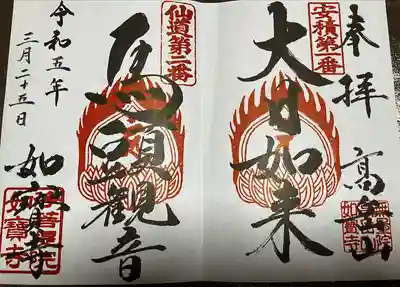 奉拝
安積第一番
大日如来
仙道第二番
馬頭觀音
令和五年
三月二十五日
如寶寺
如寶寺